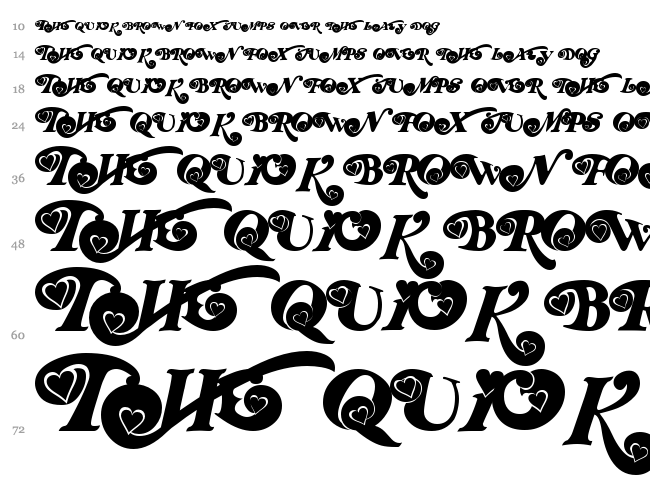 10 THE QUICK BROWN FOX JUMPS OVER THE LAZY DOG
14 THE QUICK BROWN FOX JUMPS OVER THE LAZY DOG
18 THE QUICK BROWN FOX JUMPS OVER THE L
24 THE QUICK BROWN FOX JUMPS O
36 THE QUICK BROWN FO
48 THE QUICK BROW
60 THE QUICK BR
72 THE QUICK